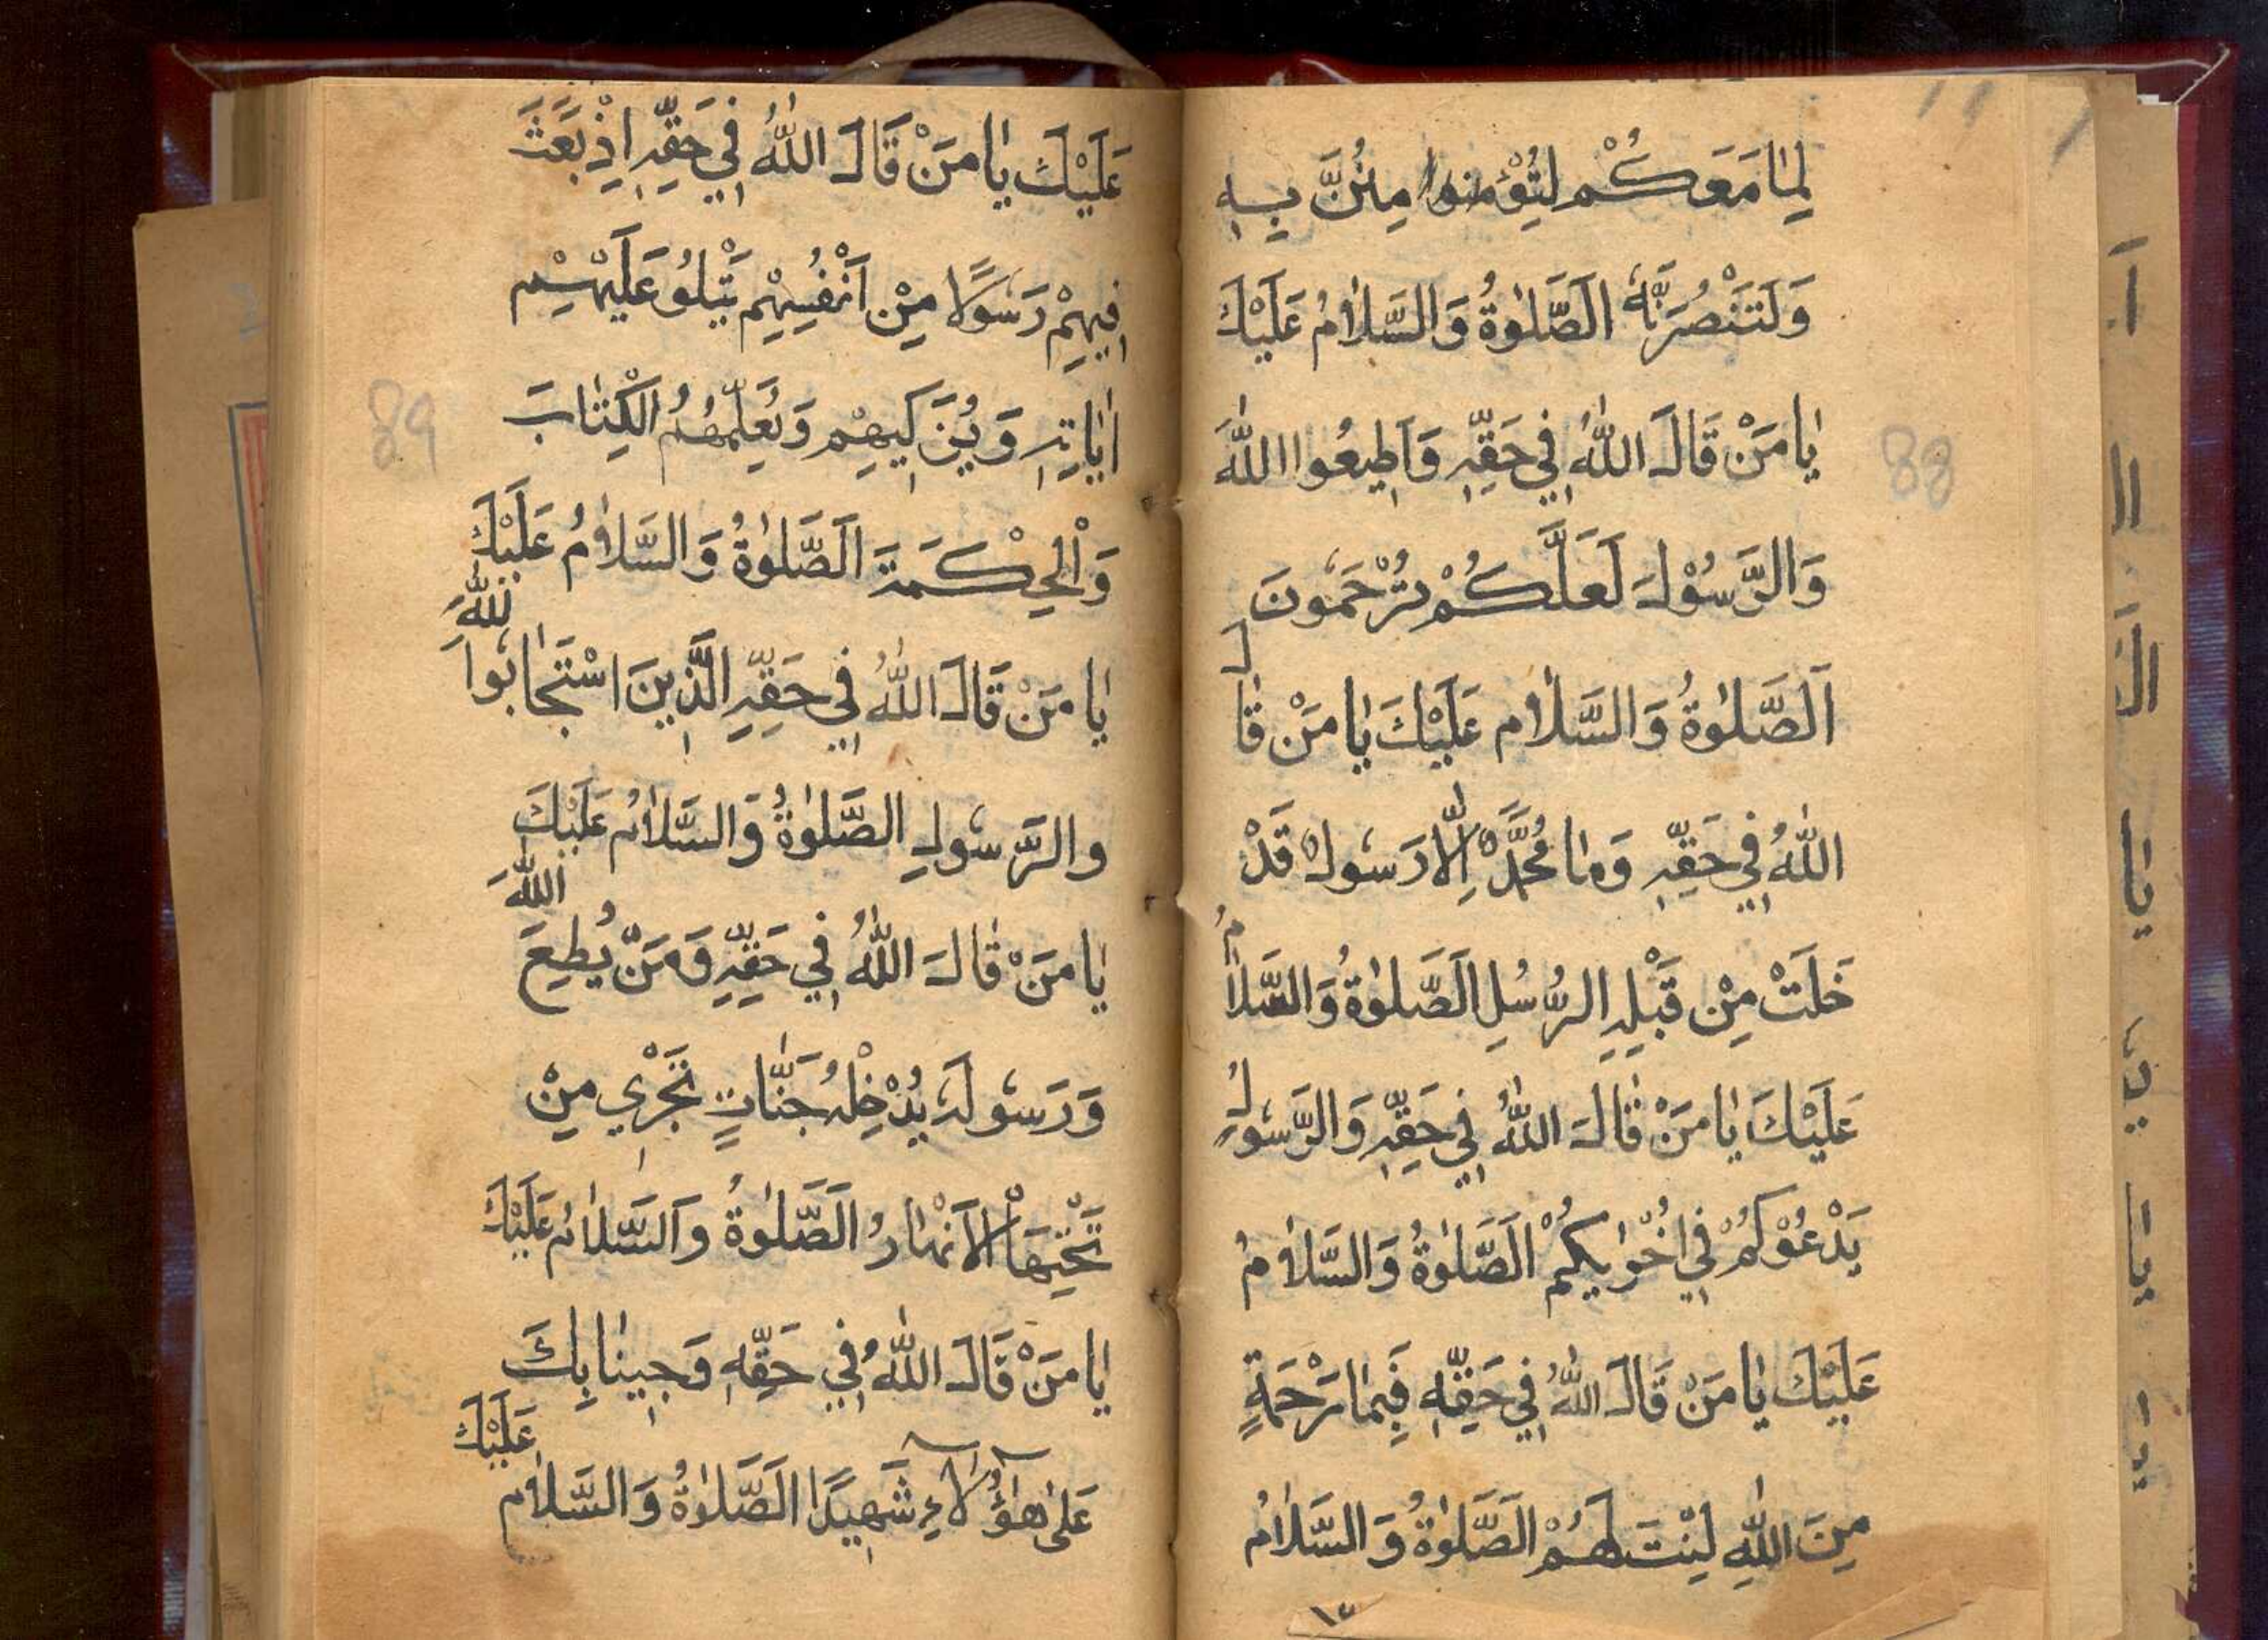 لِمَا مَعَكُمْ لَتُؤْمِنُوا مِنُنَّ بِهِ
وَلَتَنْصُرَنَّهُ الَصَّلوٰةُ وَالسَّلاٰمُ عَلَيْكَ
يَا مَنْ قَالَ اللّٰهُ فِي حَقِّهِ وَاَطِيعُوا اللّٰهَ
وَالرَّسُوْلَ لَعَلَّكُمْ تُرْحَمُونَ
اَلصَّلوٰةُ وَالسَّلاٰم عَلَيْكَ يَا مَنْ قَالَ
اللّٰهُ فِي حَقِّهِ وَمَا مُحَمَّدٌ اِلَّا رَسُولٌ قَدْ
خَلَتْ مِنْ قَبْلِهِ الرُّسُلِ الَصَّلوٰةُ وَالسَّلاٰمُ
عَلَيْكَ يَا مَنْ قَالَ اللّٰهُ فِي حَقِّهِ وَالرَّسُولُ
يَدْعُوْكُمْ فِي اُخْوٰيكُمْ الَصَّلوٰةُ وَالسَّلاٰمُ
عَلَيْكَ يَا مَنْ قَالَ اللّٰهُ فِي حَقِّهِ فَبِمَا رَحْمَةٍ
مِنَ اللّٰهِ لِنْتَ لَهُمْ الَصَّلوٰةُ وَالسَّلاٰمُ
88
عَلَيْكَ يَا مَنْ قَالَ اللّٰهُ فِي حَقِّهِ اِذْ بَعَثَ
فِيهِمْ رَسُولًا مِنْ اَنْفُسِهِمْ يَتْلُو عَلَيْهِمْ
اٰيَاتِهِ وَيُزَكِيهِمْ وَيُعَلِّمُهُمُ الْكِتَابَ
وَالْحِكْمَةَ اَلصَّلوٰةُ وَالسَّلاٰمُ عَلَيْكَ
يَا مَنْ قَالَ اللّٰهُ فِي حَقِّهِ الَّذِينَ اسْتَجَابُوا لِلّٰهِ
وَالرَّسُولِ الصَّلوٰةُ وَالسَّلاٰمُ عَلَيْكَ
يَا مَنْ قَالَ اللّٰهُ فِي حَقِّهِ وَمَنْ يُطِعِ اللّٰهَ
وَرَسُولَهُ يُدْخِلْهُ جَنَّاتٍ تَجْرِي مِنْ
تَحْتِهَا الْاَنْهَارُ الَصَّلوٰةُ وَالسَّلاٰمُ عَلَيْكَ
يَا مَنْ قَالَ اللّٰهُ فِي حَقِّهِ وَجِينَا بِكَ
عَلَى هٰؤُلَاءِ شَهِيدًا الَصَّلوٰةُ وَالسَّلاٰم عَلَيْكَ
89